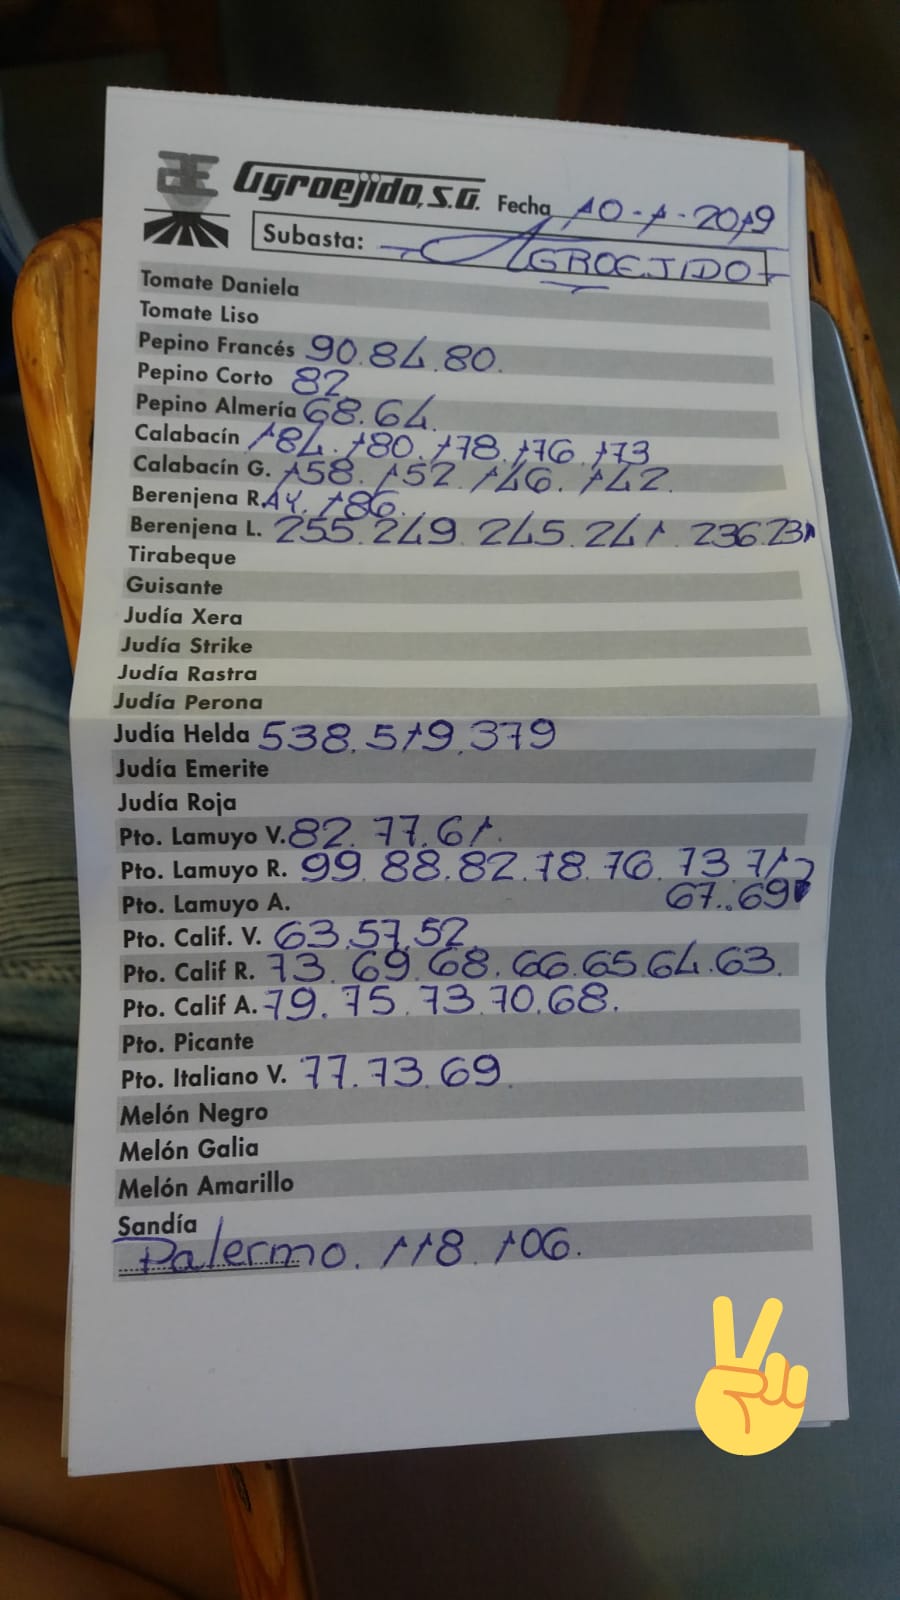 Agroejido, S.A. Fecha 10-1-2019
Subasta: AGROEJIDO
Tomate Daniela
Tomate Liso
Pepino Francés 90.84.80.
Pepino Corto 82
Pepino Almería 68.64.
Calabacín 184.180.178.176.173
Calabacín G. 158.152.146.142.
Berenjena RAY. 186.
Berenjena L. 255.249.245.241.236.231
Tirabeque
Guisante
Judía Xera
Judía Strike
Judía Rastra
Judía Perona
Judía Helda 538.519.379
Judía Emerite
Judía Roja
Pto. Lamuyo V. 82.77.61.
Pto. Lamuyo R. 99.88.82.78.76.73 71
Pto. Lamuyo A. 67..69
Pto. Calif. V. 63.57.52
Pto. Calif R. 73.69.68.66.65.64.63.
Pto. Calif A. 79.75.73.70.68.
Pto. Picante
Pto. Italiano V. 77.73.69
Melón Negro
Melón Galia
Melón Amarillo
Sandía
Palermo. 118.106.